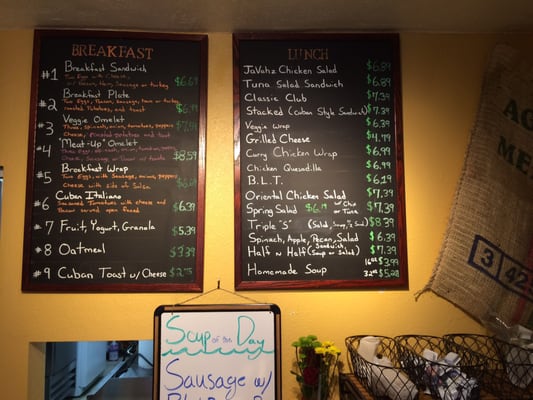 BREAKFAST
#1 Breakfast Sandwich
Two Eggs with Cheese,
w/ Bacon, Ham, Sausage or turkey $6.69
#2 Breakfast Plate
Two Eggs, Bacon, sausage, ham or turkey
Potatoes, and toast
#3 Veggie Omelet
onion, tomatoes, peppers
Cheese, potatoes and toast
#4 "Meat-Up" Omelet
$8.59
#5 Breakfast Wrap
Two Eggs, with Sausage, onions, peppers
Cheese with side of Salsa
#6 Cuban Italiano
Seasoned Tomatoes with cheese and
Bacon served open faced $6.39
#7 Fruit, Yogurt, Granola $5.39
#8 Oatmeal $3.39
#9 Cuban Toast w/ Cheese $2.75
LUNCH
JaVahz Chicken Salad $6.89
Tuna Salad Sandwich $6.89
Classic Club $7.39
Stacked (Cuban Style Sandwich) $7.39
Veggie Wrap $6.39
Grilled Cheese $4.79
Curry Chicken Wrap $6.99
Chicken Quesadilla $6.99
B.L.T. $6.19
Oriental Chicken Salad $7.39
Spring Salad or Tuna $7.39
Triple "S" (Salad, Soup, ½ Sand) $8.39
Spinach, Apple, Pecan, Salad $6.39
Half n Half (Sandwich, Soup or Salad) $7.39
Homemade Soup 16oz $3.99
32oz $5.99
Soup of the Day
Sausage w/
AG
ME
3 42